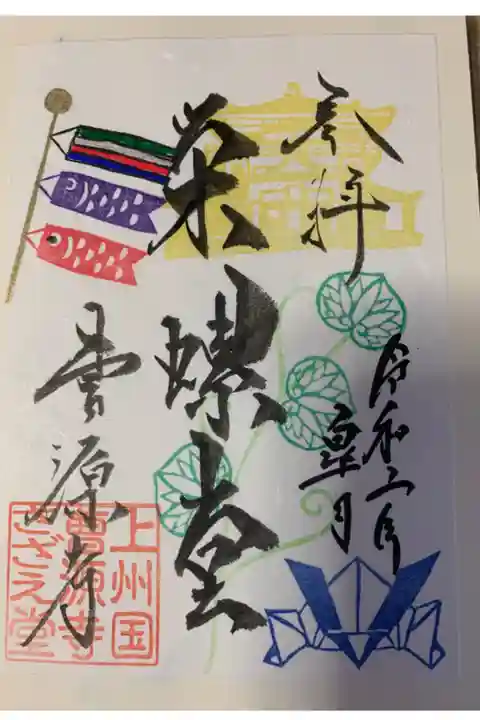 奉拝
令和二年
皐月
栄螺堂
曹源寺
上州国
曹源寺
さざえ堂